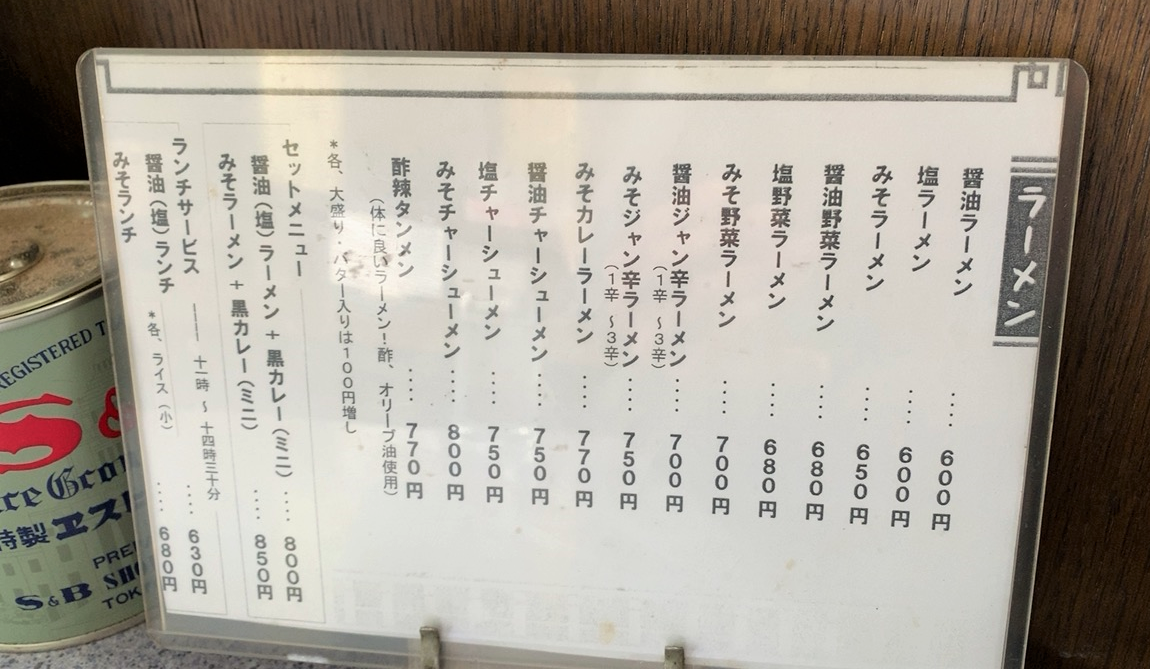 ラーメン
醤油ラーメン ‥‥ 600円
塩ラーメン ‥‥ 600円
みそラーメン ‥‥ 650円
醤油野菜ラーメン ‥‥ 680円
塩野菜ラーメン ‥‥ 680円
みそ野菜ラーメン ‥‥ 700円
醤油ジャン辛ラーメン ‥‥ 700円
(1辛 ～3辛)
みそジャン辛ラーメン ‥‥ 750円
(1辛 ～3辛)
みそカレーラーメン ‥‥ 770円
醤油チャーシューメン ‥‥ 750円
塩チャーシューメン ‥‥ 750円
みそチャーシューメン ‥‥ 800円
酢辣タンメン ‥‥ 770円
(体に良いラーメン!酢、オリーブ油使用)
*各、大盛り・バター入りは100円増し
セットメニュー
醤油(塩)ラーメン + 黒カレー(ミニ) ‥‥ 800円
みそラーメン + 黒カレー(ミニ) ‥‥ 850円
ランチサービス ―― 十一時 ～ 十四時三十分
醤油(塩)ランチ ‥‥ 630円
みそランチ *各、ライス(小) ‥‥ 680円
REGISTERED T
S &
特製 ヱス
PRE
S&B SH
TOK